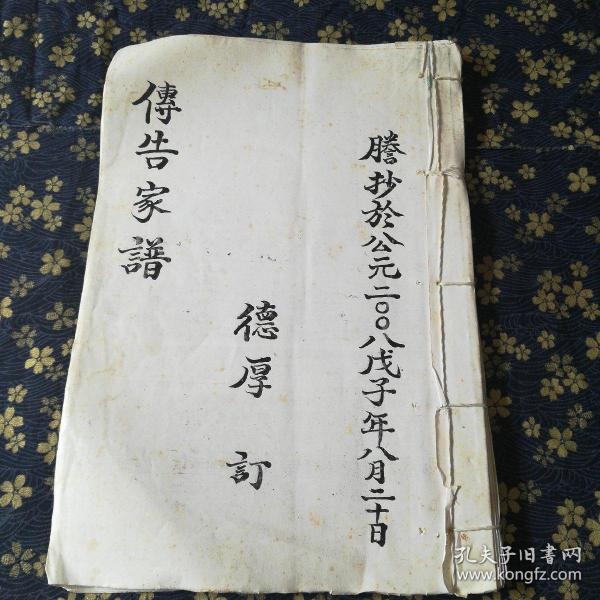 謄抄於公元二〇〇八戊子年八月二十日
德厚 訂
傳告家譜
孔夫子旧書网
www.kongfz.com